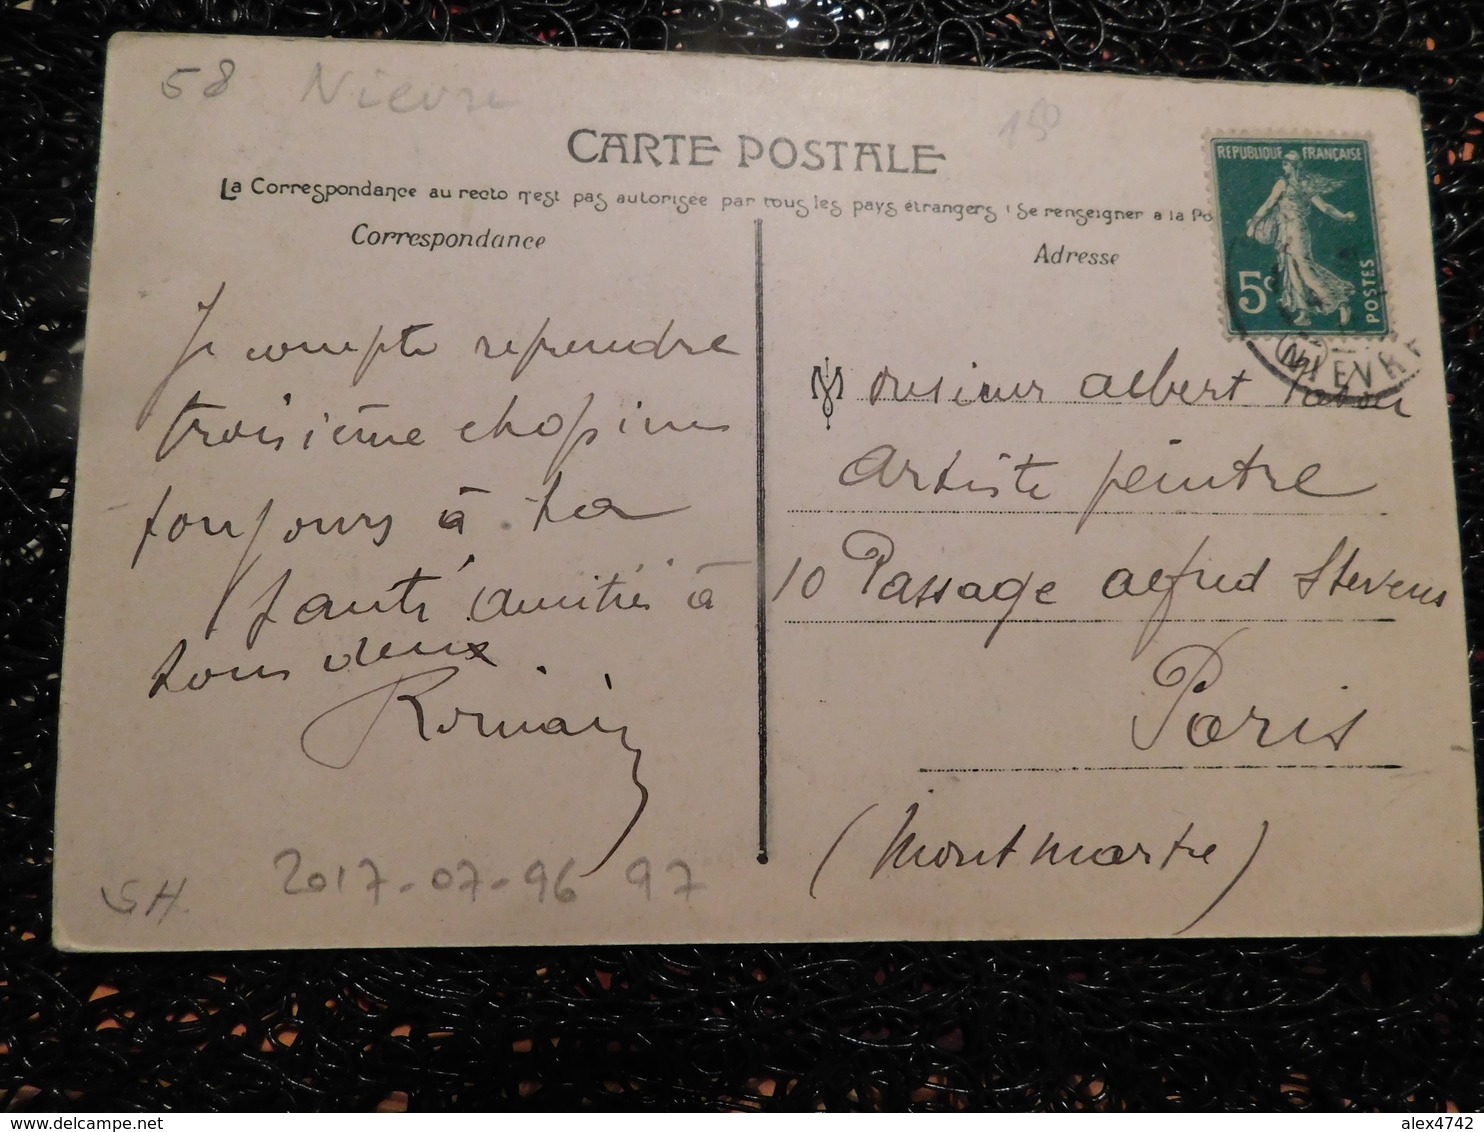 58 Nievre
150
CARTE POSTALE
La Correspondance au recto n'est pas autorisée par tous les pays étrangers (Se renseigner a la Po
Correspondance
Adresse
REPUBLIQUE FRANÇAISE
5c
POSTES
NIEVRE
Je compte reprendre
troisième chopine
toujours à ta
santé amitiés à
tous deux
Romain
Monsieur Albert
artiste peintre
10 Passage Alfred Stevens
Paris
(Montmartre)
SH
2017-07-96 97
delcampe.net
alex4742